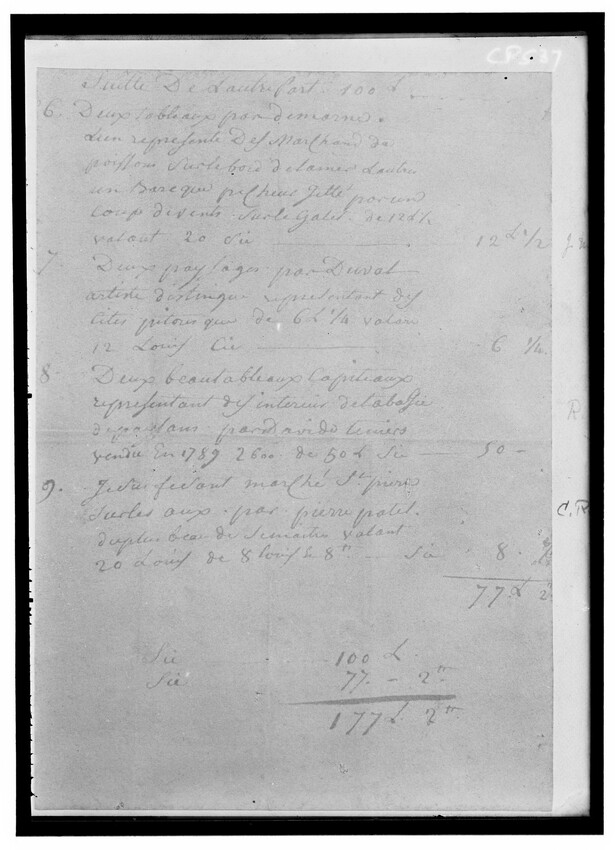 CPS37
Suitte De Lautre Part 100 L
6. Deux tableaux par demarne.
Lun represente Des Marchand de
poissons sur le bord de la mer Lautre
un Barque pecheur jetté par un
coup de vents sur le Galet de 12 L 1/2
valant 20 Sie 12 L 1/2
7 Deux paysages par Duval
artiste distingue representant des
sites pitoresque de 6 L 1/4 valan
12 Louis Cie 6 1/4.
8 Deux beau tableaux Capiteaux
representant des interieur de tabagie
de paysans par David teniers
vendu En 1789 2600 de 50 L Sie 50 -
9. Jesus fesant marché St pierre
sur les aux par pierre patel.
du plus beau de se maitre valant
20 Louis de 8 Louis le 8 tt Sie 8.
77 L 2
Sie 100 L
Sie 77 - 2 tt
177 L 2 tt
R
C.R